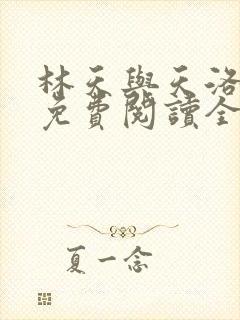 林天與天洛
免費閱讀全
夏一念